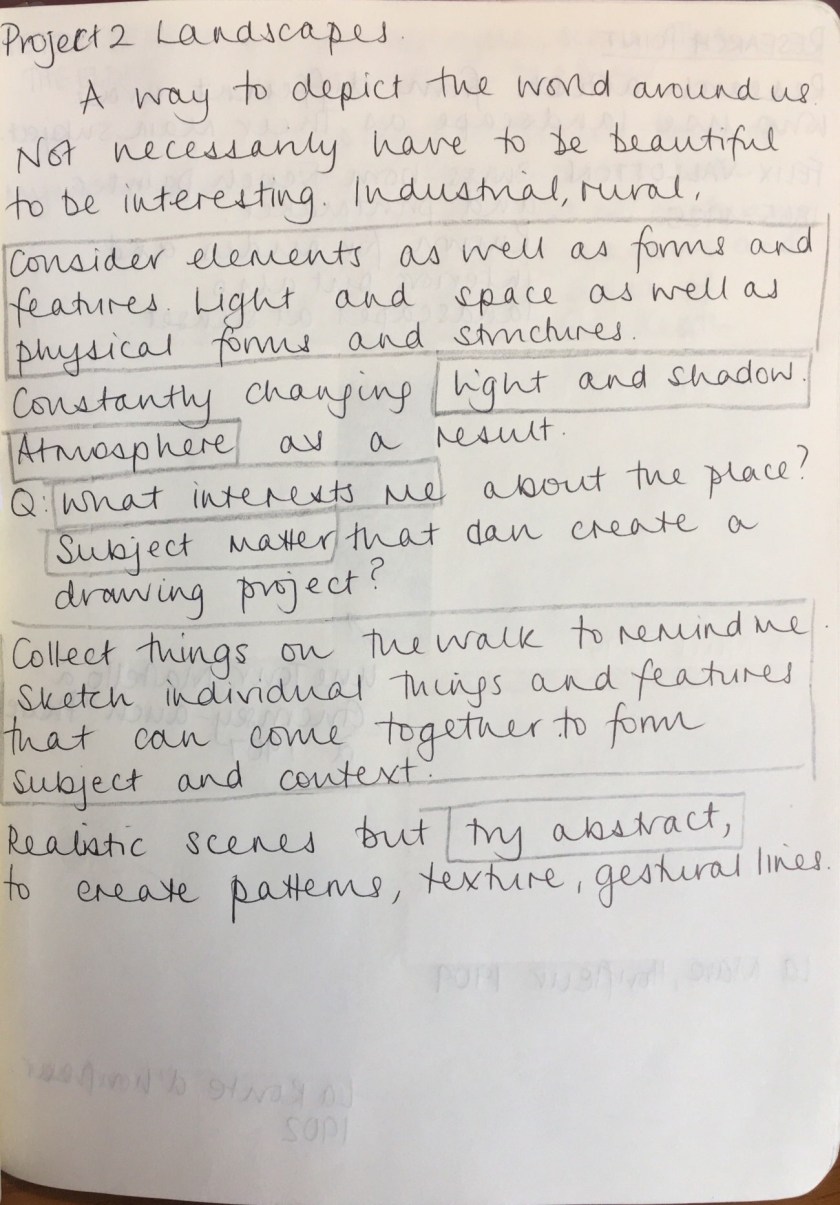 Project 2 Landscapes.
A way to depict the world around us.
Not necessarily have to be beautiful
to be interesting. Industrial, rural,
Consider elements as well as forms and
features. Light and space as well as
physical forms and structures.
Constantly changing light and shadow.
Atmosphere as a result.
Q: What interests me about the place?
Subject matter that dan create a
drawing project?
Collect things on the walk to remind me.
Sketch individual things and features
that can come together to form
subject and context.
Realistic scenes but try abstract,
to create patterns, texture, gestural lines.
RESEARCH POINT
FELIX VALLOTTON
1902